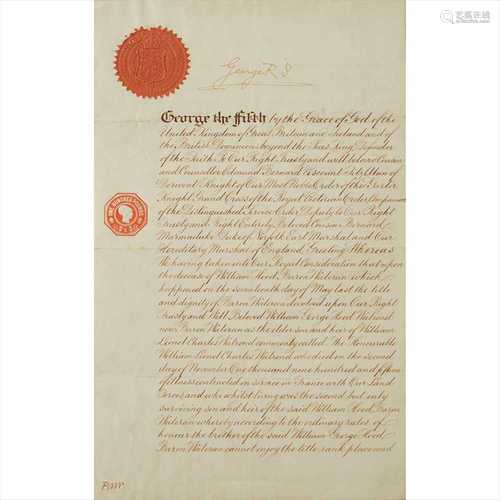 George R I
George the Fifth by the Grace of God of the
United Kingdom of Great Britain and Ireland and of
the British Dominions beyond the Seas King Defender
of the Faith To Our Right Trusty and well beloved Cousin
and Counsellor Edmund Bernard Viscount FitzAlan of
Derwent Knight of Our Most Noble Order of the Garter
Knight Grand Cross of the Royal Victorian Order Companion
of the Distinguished Service Order Deputy to Our Right
Trusty and Right Entirely Beloved Cousin Bernard
Marmaduke Duke of Norfolk Earl Marshal and Our
Hereditary Marshal of England Greeting Whereas
We having taken into Our Royal Consideration that upon
the decease of William Hood, Baron Waleran which
happened on the seventeenth day of May last the title
and dignity of Baron Waleran devolved upon Our Right
Trusty and Well Beloved William George Hood Walrond
now Baron Waleran as the elder son and heir of William
Lionel Charles Walrond commonly called The Honourable
William Lionel Charles Walrond who died on the second
day of November One thousand nine hundred and fifteen
of illness contracted in service in France with Our Land
Forces and who whilst living was the second but only
surviving son and heir of the said William Hood, Baron
Waleran whereby according to the ordinary rules of
honour the brother of the said William George Hood
Baron Waleran cannot enjoy the title, rank place and
ONE HUNDRED POUNDS